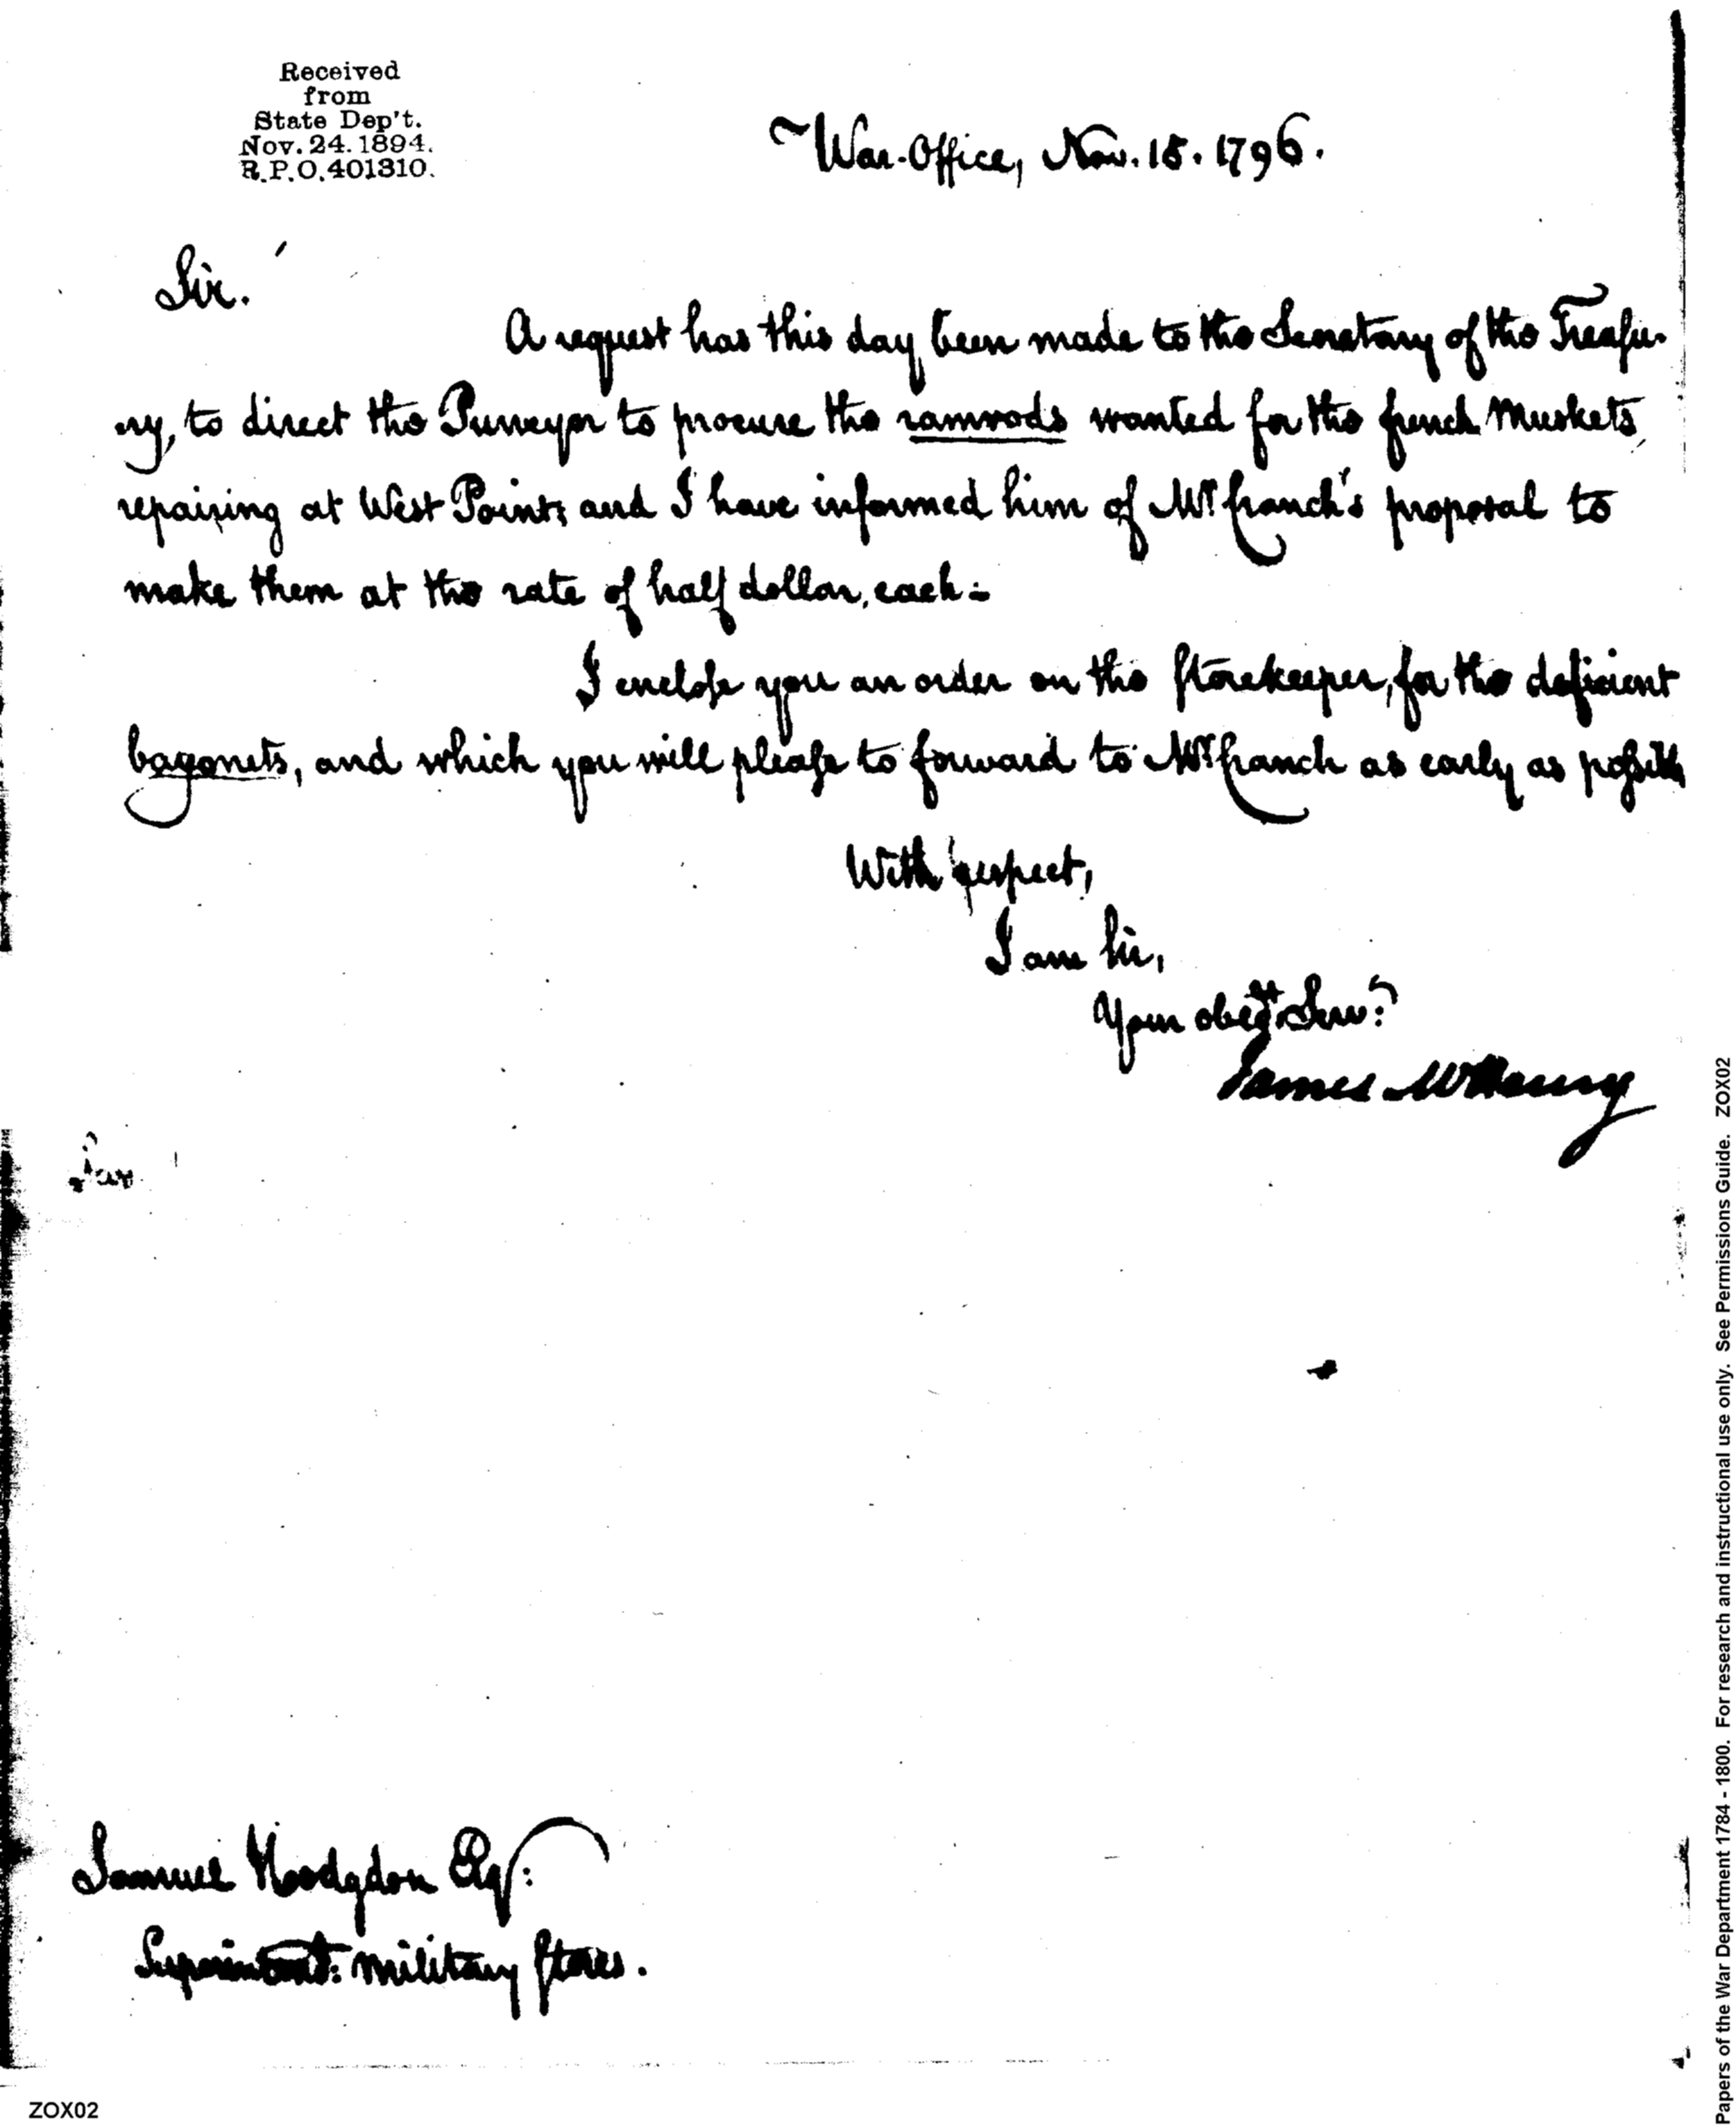 Received
from
State Dep't.
Nov. 24. 1894.
R.P.O. 401310.
War-Office, Nov. 15. 1796.
Sir.
A request has this day been made to the Secretary of the Treasu-
ry, to direct the Purveyor to procure the ramrods wanted for the french Muskets
repairing at West Point; and I have informed him of Mr. franch's proposal to
make them at the rate of half dollar, each.
I enclose you an order on the storekeeper, for the deficient
bayonets, and which you will please to forward to Mr. franch as early as possible
With respect,
I am Sir,
Your obedt. Servt.
James McHenry
Samuel Hodgdon Esqr:
Superintendt: military stores.
Papers of the War Department 1784 - 1800. For research and instructional use only. See Permissions Guide. ZOX02
ZOX02